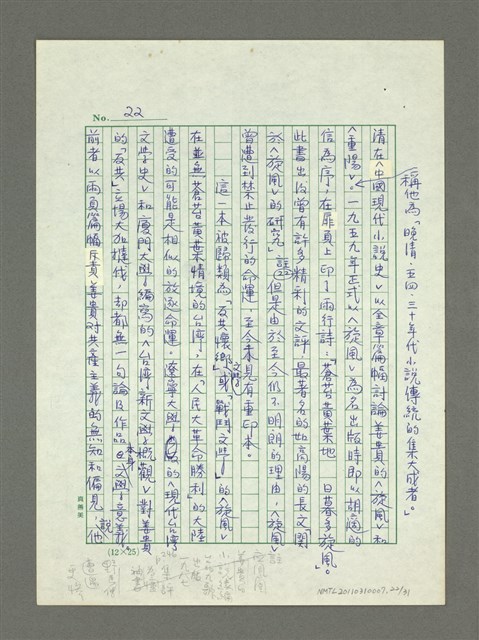 No. 22
稱他為「晚清、五四、三十年代小說傳統的集大成者。」
清在〈中國現代小說史〉以全章篇幅討論姜貴的〈旋風〉和
〈重陽〉。一九五九年正式以〈旋風〉為名出版時即以胡適的
信為序,在扉頁上印了兩行詩:蒼苔黃葉地 日暮多旋風。
此書出後曾有許多精利的文評,最著名的如高陽的長文〈關
於〈旋風〉的研究〉註22,但是由於至今仍不明朗的理由,〈旋風〉
曾遭到禁止發行的命運,至今未見有重印本。
這一本被歸類為「反共懷鄉文學」或「戰鬥文學」的〈旋風〉
在並無蒼苔黃葉情境的台灣,在「人民大革命勝利」的大陸
遭受的可能是相似的放逐命運。遼寧大學的〈現代台灣
文學史〉和廈門大學編寫的〈台灣新文學概觀〉對姜貴
的「反共」立場大張撻伐,却都無一句論及作品本身文學意義。
前者以兩頁篇幅斥責姜貴對共產主義的無知和偏見,說他
(12×25)
NMTL20110310007.22/31